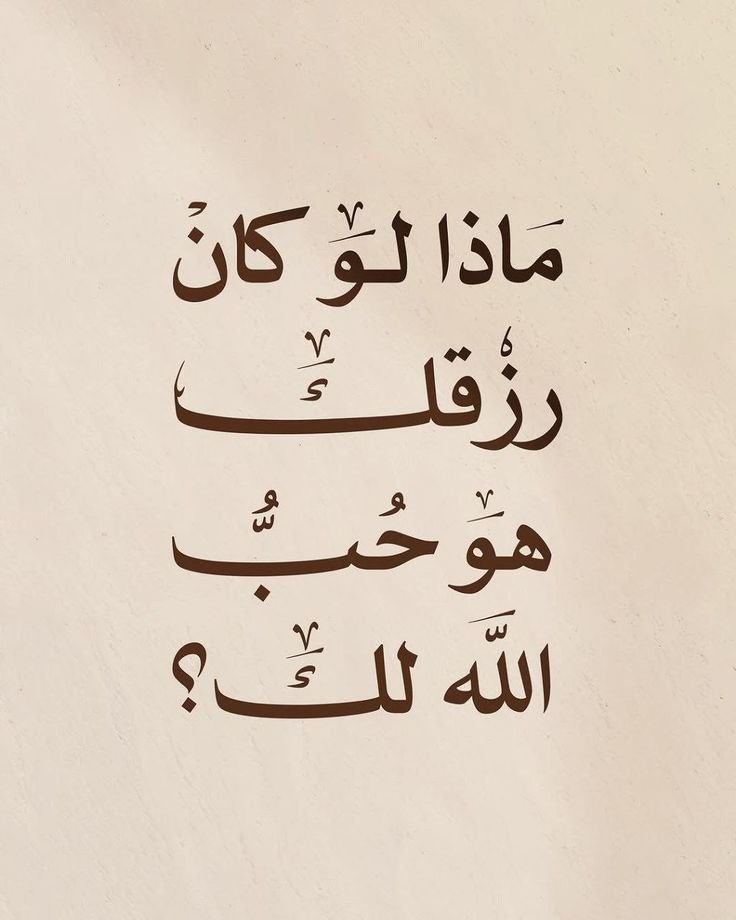 مَاذا لوَ كانْ
رزْقلكَ
هوَ حُبُّ
اللَّه لكَ؟